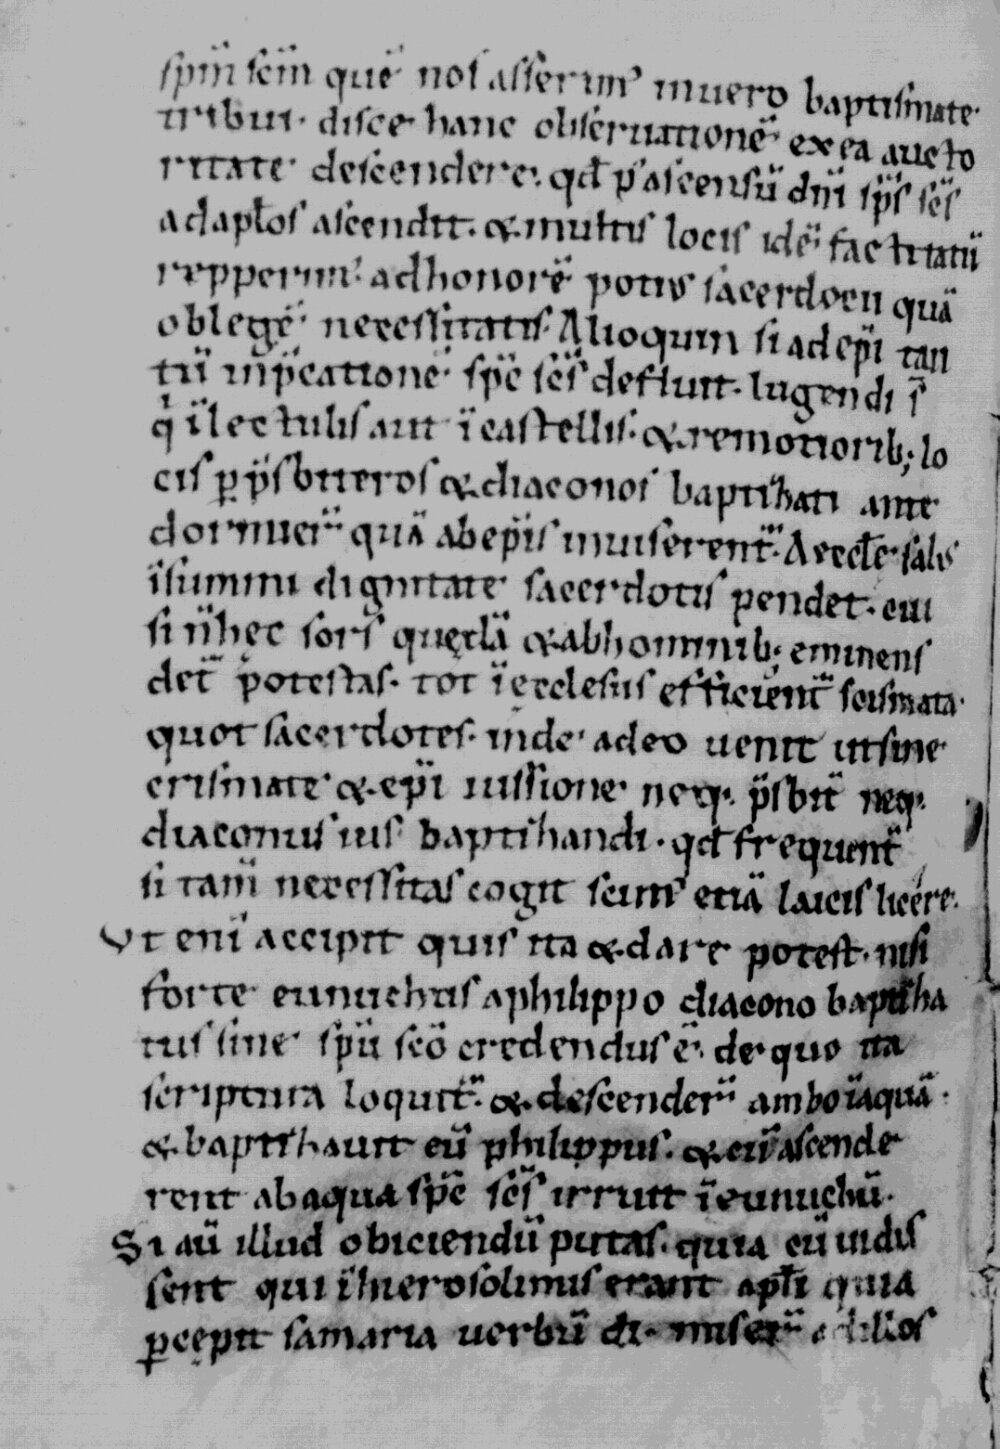 sp̄m sc̄m quē nos asserim' inuero baptismate·
tribui· disce hanc obseruationē ex ea aucto
ritate descendere· qđ p' ascensū dn̄i sp̄s sc̄s
ad apłos ascendit· & multis locis idē factitatū
repperim' ad honorē potius sacerdocii quā
ob legē necessitatis· Alioquin si ad ep̄i tan
tū īp̄cationē sp̄c sc̄s defluit· lugendi s̄
q' ī lectulis aut ī castellis· & remotiorib; lo
cis ꝑ p̄sbiteros & diaconos baptizati ante
dormier̄ quā ab ep̄is inuiserent̄· Aeccłe salus
ī summi dignitate sacerdotis pendet· cui
si n̄ hęc sors quędā & ab hominib; eminens
det̄ potestas· tot ī ęcclesiis efficient̄ scismata·
quot sacerdotes· inde adeo uenit ut sine
crismate & ep̄i iussione neq· p̄sbit̄ neq·
diaconus ius baptizandi· qđ frequent̄
si tam̄ necessitas cogit scim' etiā laicis licere·
Ut eni accipit quis ita & dare potest· nisi
forte eunuchus a philippo diacono baptiza
tus sine sp̄u sc̄o credendus ē· de quo ita
scriptura loquit̄· & descender̄ ambo ī aquā·
& baptizauit eū philippus· & cū ascende
rent ab aqua sp̄c sc̄s irruit ī eunuchū·
Si aū illud obiciendū putas· quia cū audis
sent qui ī hierosolimis erant apłi quia
ꝑcępit samaria uerbū di· miser̄ ad illos